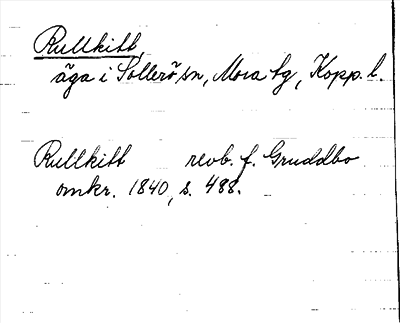 Rullkitt,
äga i Sollerö sn, Mora tg, Kopp. l.
Rullkitt revb. f. Gruddbo
omkr. 1840, s. 488.